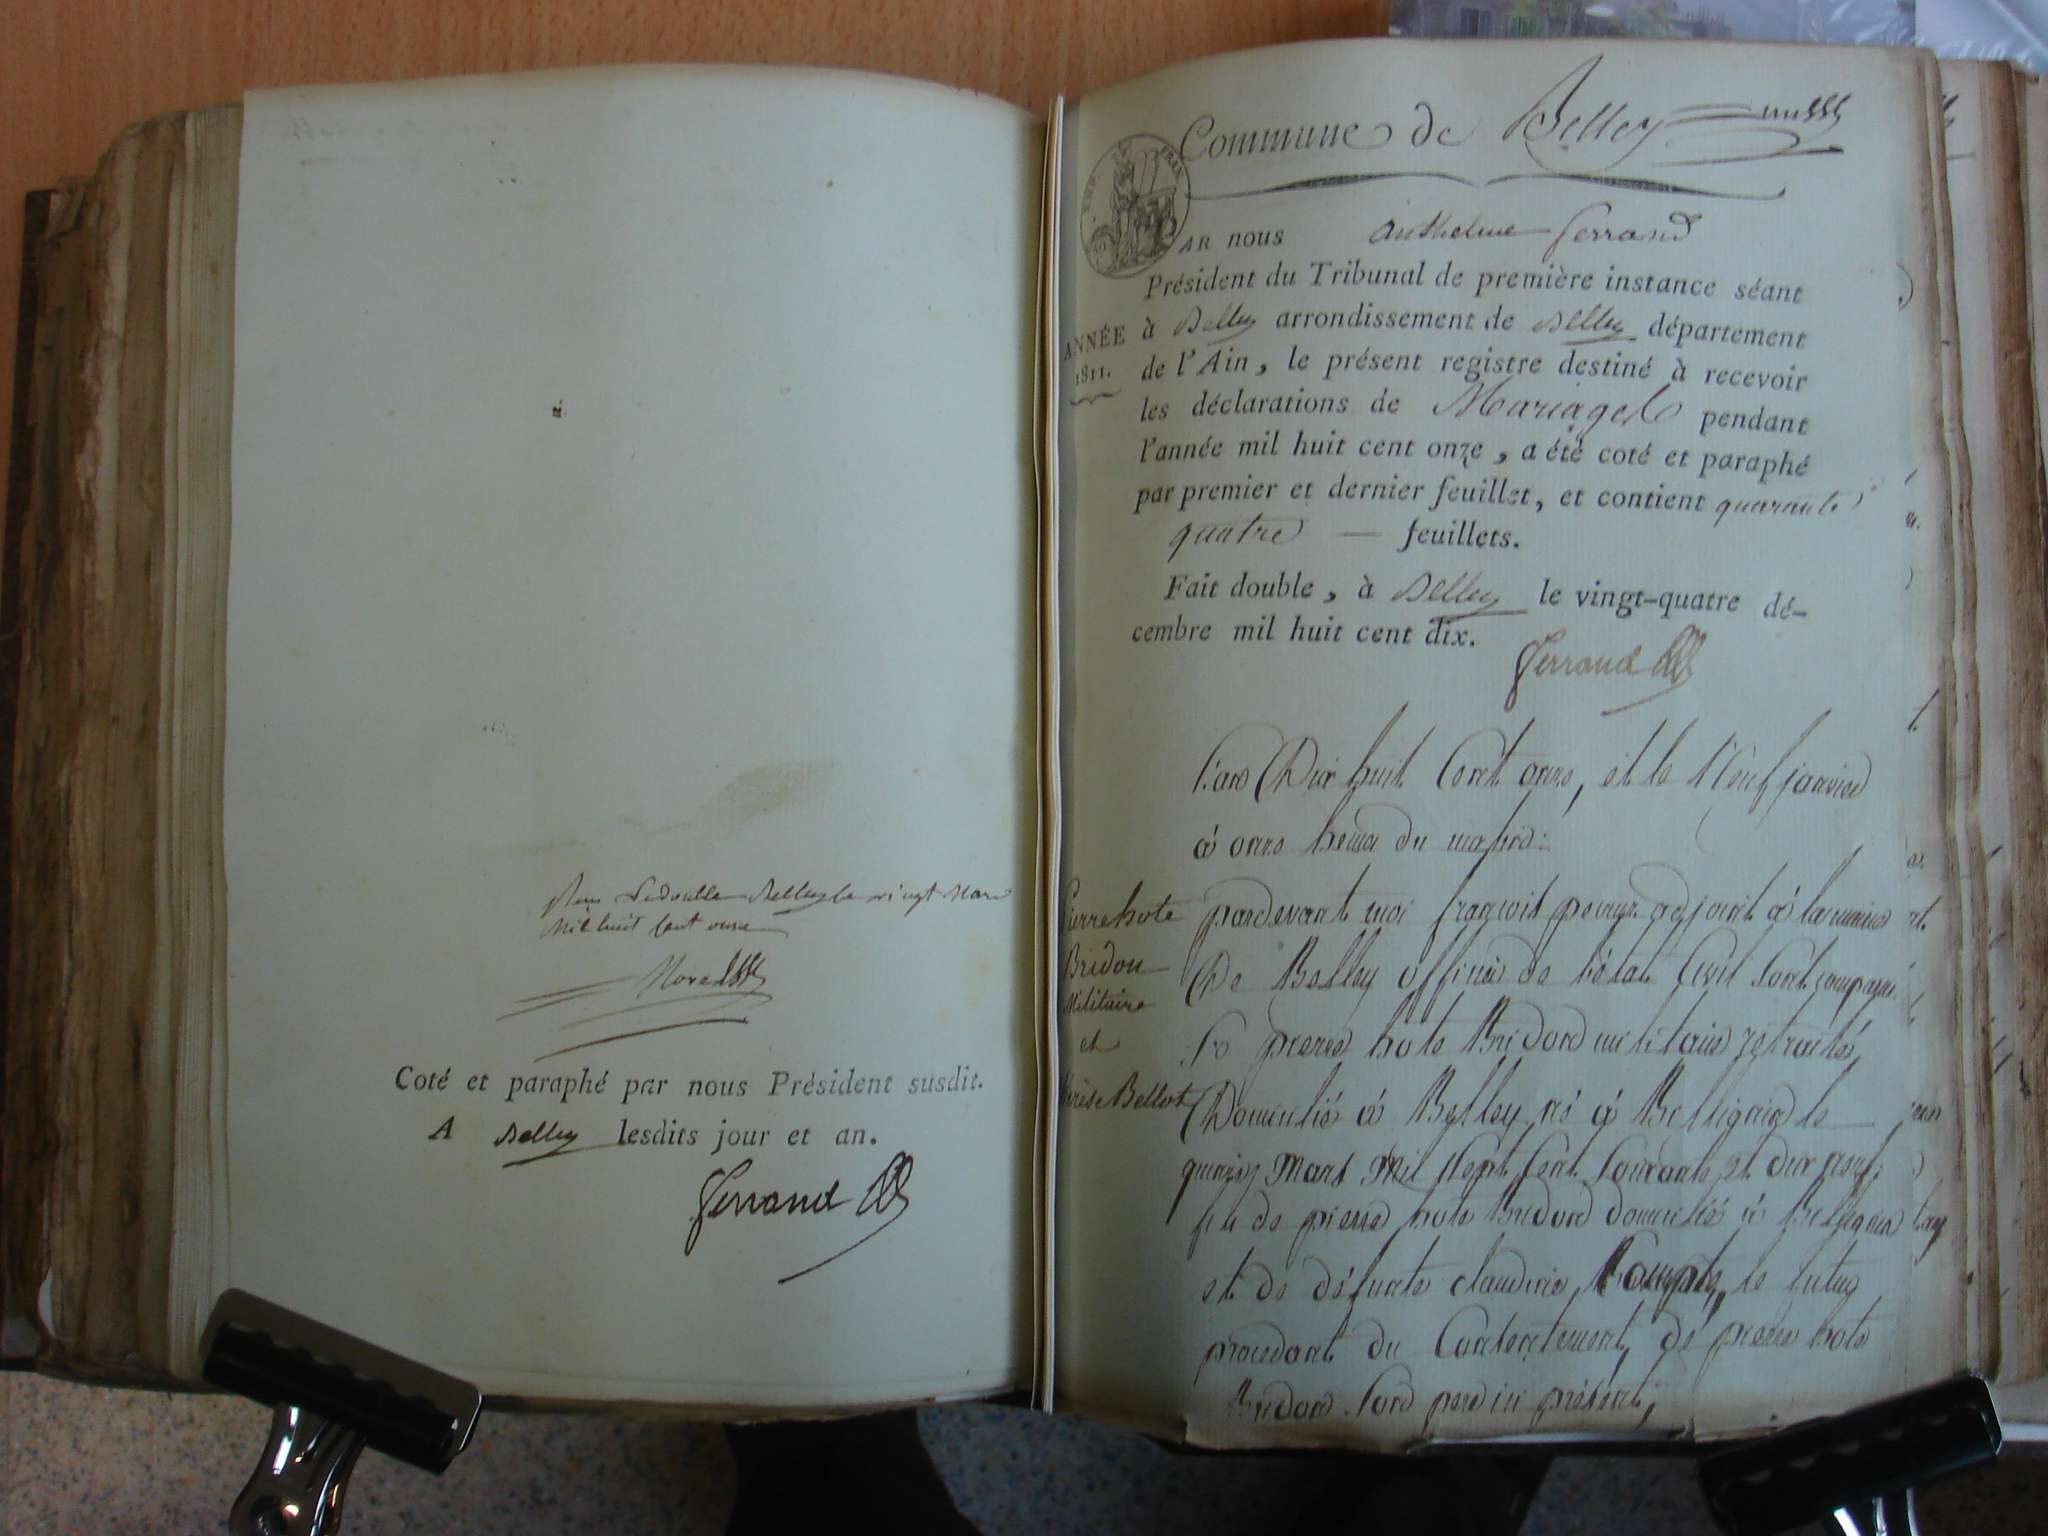 mil huit cent onze
Coté et paraphé par nous Président susdit.
A Belley lesdits jour et an.
Ferrand
Commune de Belley
REP. FRAN.
AR nous Anthelme Ferrand
Président du Tribunal de première instance séant
ANNÉE
1811.
à Belley arrondissement de Belley département
de l'Ain, le présent registre destiné à recevoir
les déclarations de Mariages pendant
l'année mil huit cent onze, a été coté et paraphé
par premier et dernier feuillet, et contient quarante
quatre — feuillets.
Fait double, à Belley le vingt-quatre dé-
cembre mil huit cent dix.
Ferrand
l'an Dix huit Cent onze, et le Neuf janvier
à onze heures du matin:
Pierre hote
Bridon
Militaire
et
Bellot
pardevant moi françois adjoint à la mairie
De Belley officier de l'état Civil Sont comparus
pierre hote Bridon militaire retraité,
Domicilié à Belley né à Belligniale
quinze Mars Mil Sept Cent Soixante et dix neuf:
fils de pierre hote Bridon domicilié à
et de défunte claudine le futur
procedant du Consentement, de pierre hote
Bridon Son pere ici présent,